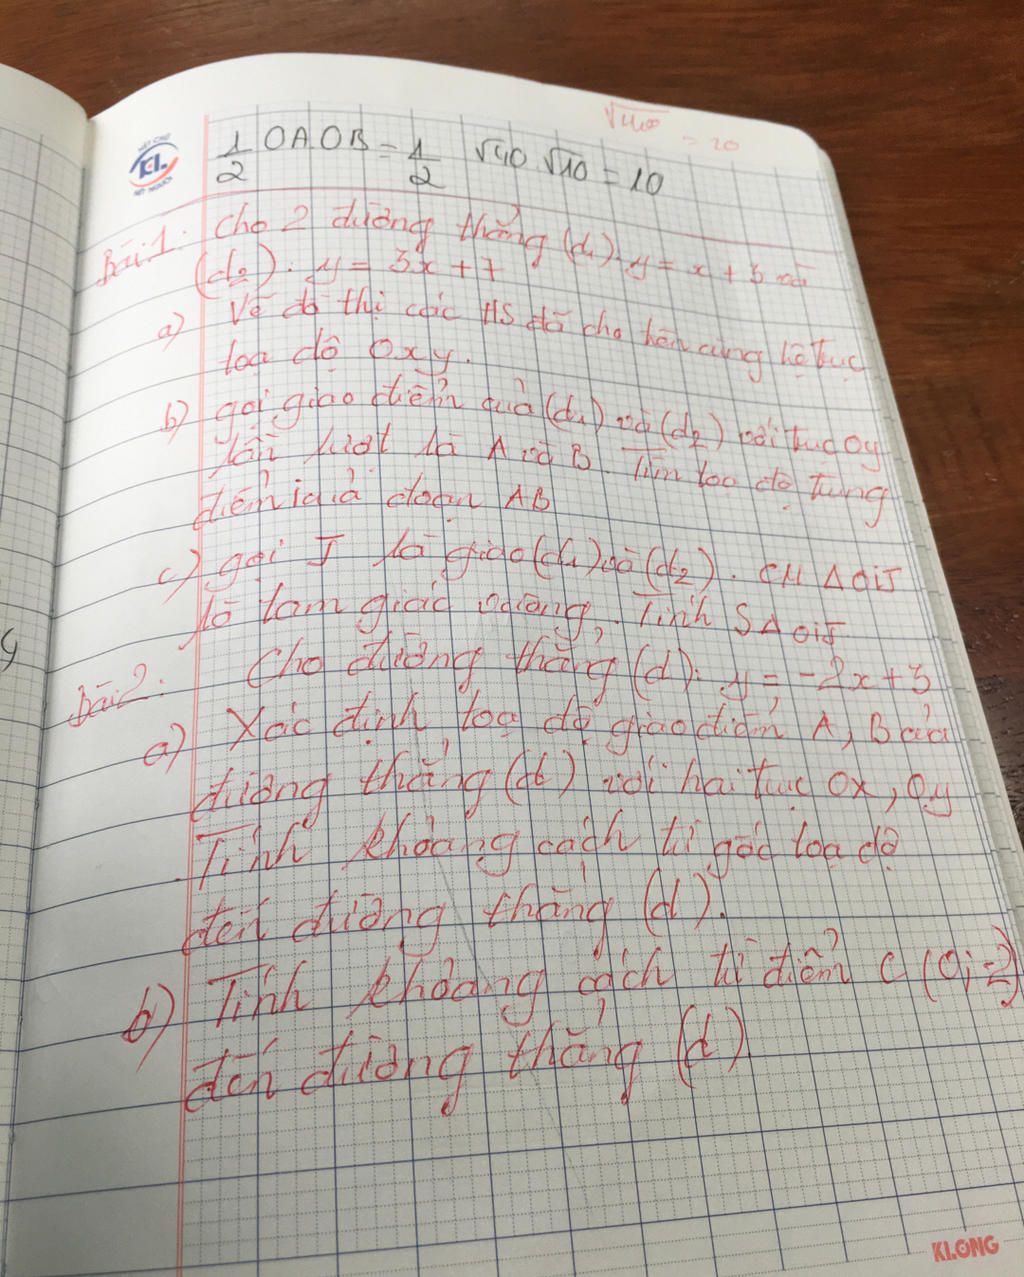 √400 = 20
1/2 OA.OB = 1/2 √40 √10 = 10
Bài 1: Cho 2 đường thẳng (d₁). y = x + 3 và
(d₂). y = 3x + 7
a) Vẽ đồ thị các HS đã cho trên cùng hệ trục
toạ độ Oxy.
b) gọi giao điểm của (d₁) và (d₂) với trục oy
lần lượt là A và B. Tìm toạ độ trung
điểm i của đoạn AB
c) gọi J là giao (d₁) và (d₂). CM Δ OiJ
là tam giác vuông. Tính S Δ OiJ
Bài 2: Cho đường thẳng (d): y = -2x + 3
a) Xác định toạ độ giao điểm A, B của
đường thẳng (d) với hai trục Ox, Oy
Tính khoảng cách từ gốc toạ độ
đến đường thẳng (d).
b) Tính khoảng cách từ điểm C (0; -2)
đến đường thẳng (d)
KLONG